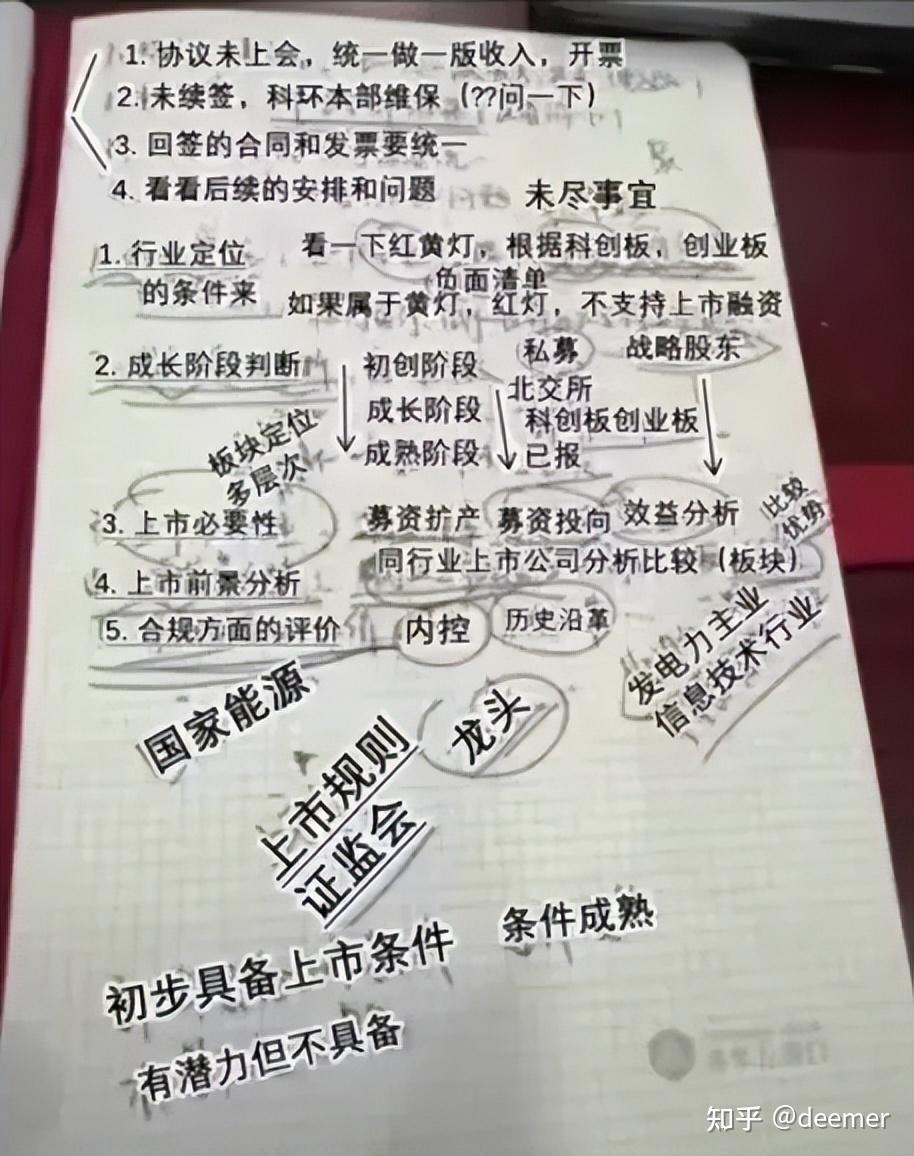 1. 协议未上会，统一做一版收入，开票
2. 未续签，科环本部维保（??问一下）
3. 回签的合同和发票要统一
4. 看看后续的安排和问题
未尽事宜
1. 行业定位 看一下红黄灯，根据科创板，创业板
负面清单
的条件来 如果属于黄灯，红灯，不支持上市融资
2. 成长阶段判断 初创阶段 私募 战略股东
北交所
成长阶段 科创板创业板
成熟阶段 已报
板块定位
多层次
3. 上市必要性 募资扩产 募资投向 效益分析
比较
优势
同行业上市公司分析比较（板块）
4. 上市前景分析
5. 合规方面的评价 内控 历史沿革
发电力主业
信息技术行业
国家能源
龙头
上市规则
证监会
条件成熟
初步具备上市条件
有潜力但不具备
知乎 @deemer